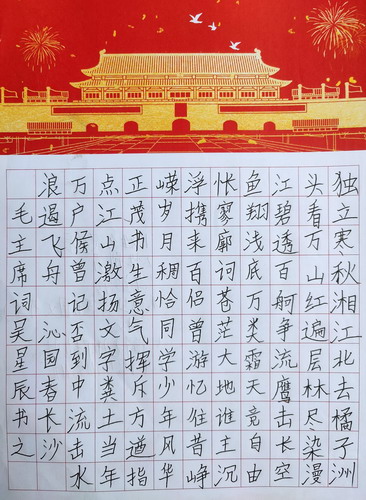 独立寒秋湘江北去橘子洲
头看万山红遍层林尽染漫
江碧透百舸争流鹰击长空
鱼翔浅底万类霜天竞自由
怅寥廓词苍茫大地谁主沉
浮携来百侣曾游忆往昔峥
嵘岁月稠恰同学少年风华
正茂书生意气挥斥方遒指
点江山激扬文字粪土当年
万户侯曾记否到中流击水
浪遏飞舟 沁国春长沙
毛主席词吴星辰书之